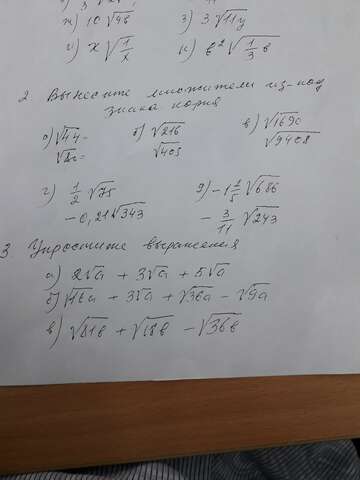 ж) 10√4в з) 3√11y
и) x√(1/x) к) в²√(1/3 в)
2. Вынесите множители из-под
знака корня
а) √44 = б) √216 в) √1690
√405 √9408
г) 1/2 √75 д) -1 1/5 √686
-0,21√343 - 3/11 √243
3. Упростите выражения
а) 2√a + 3√a + 5√a
б) √16a + 3√a + √36a - √9a
в) √81в + √18в - √36в